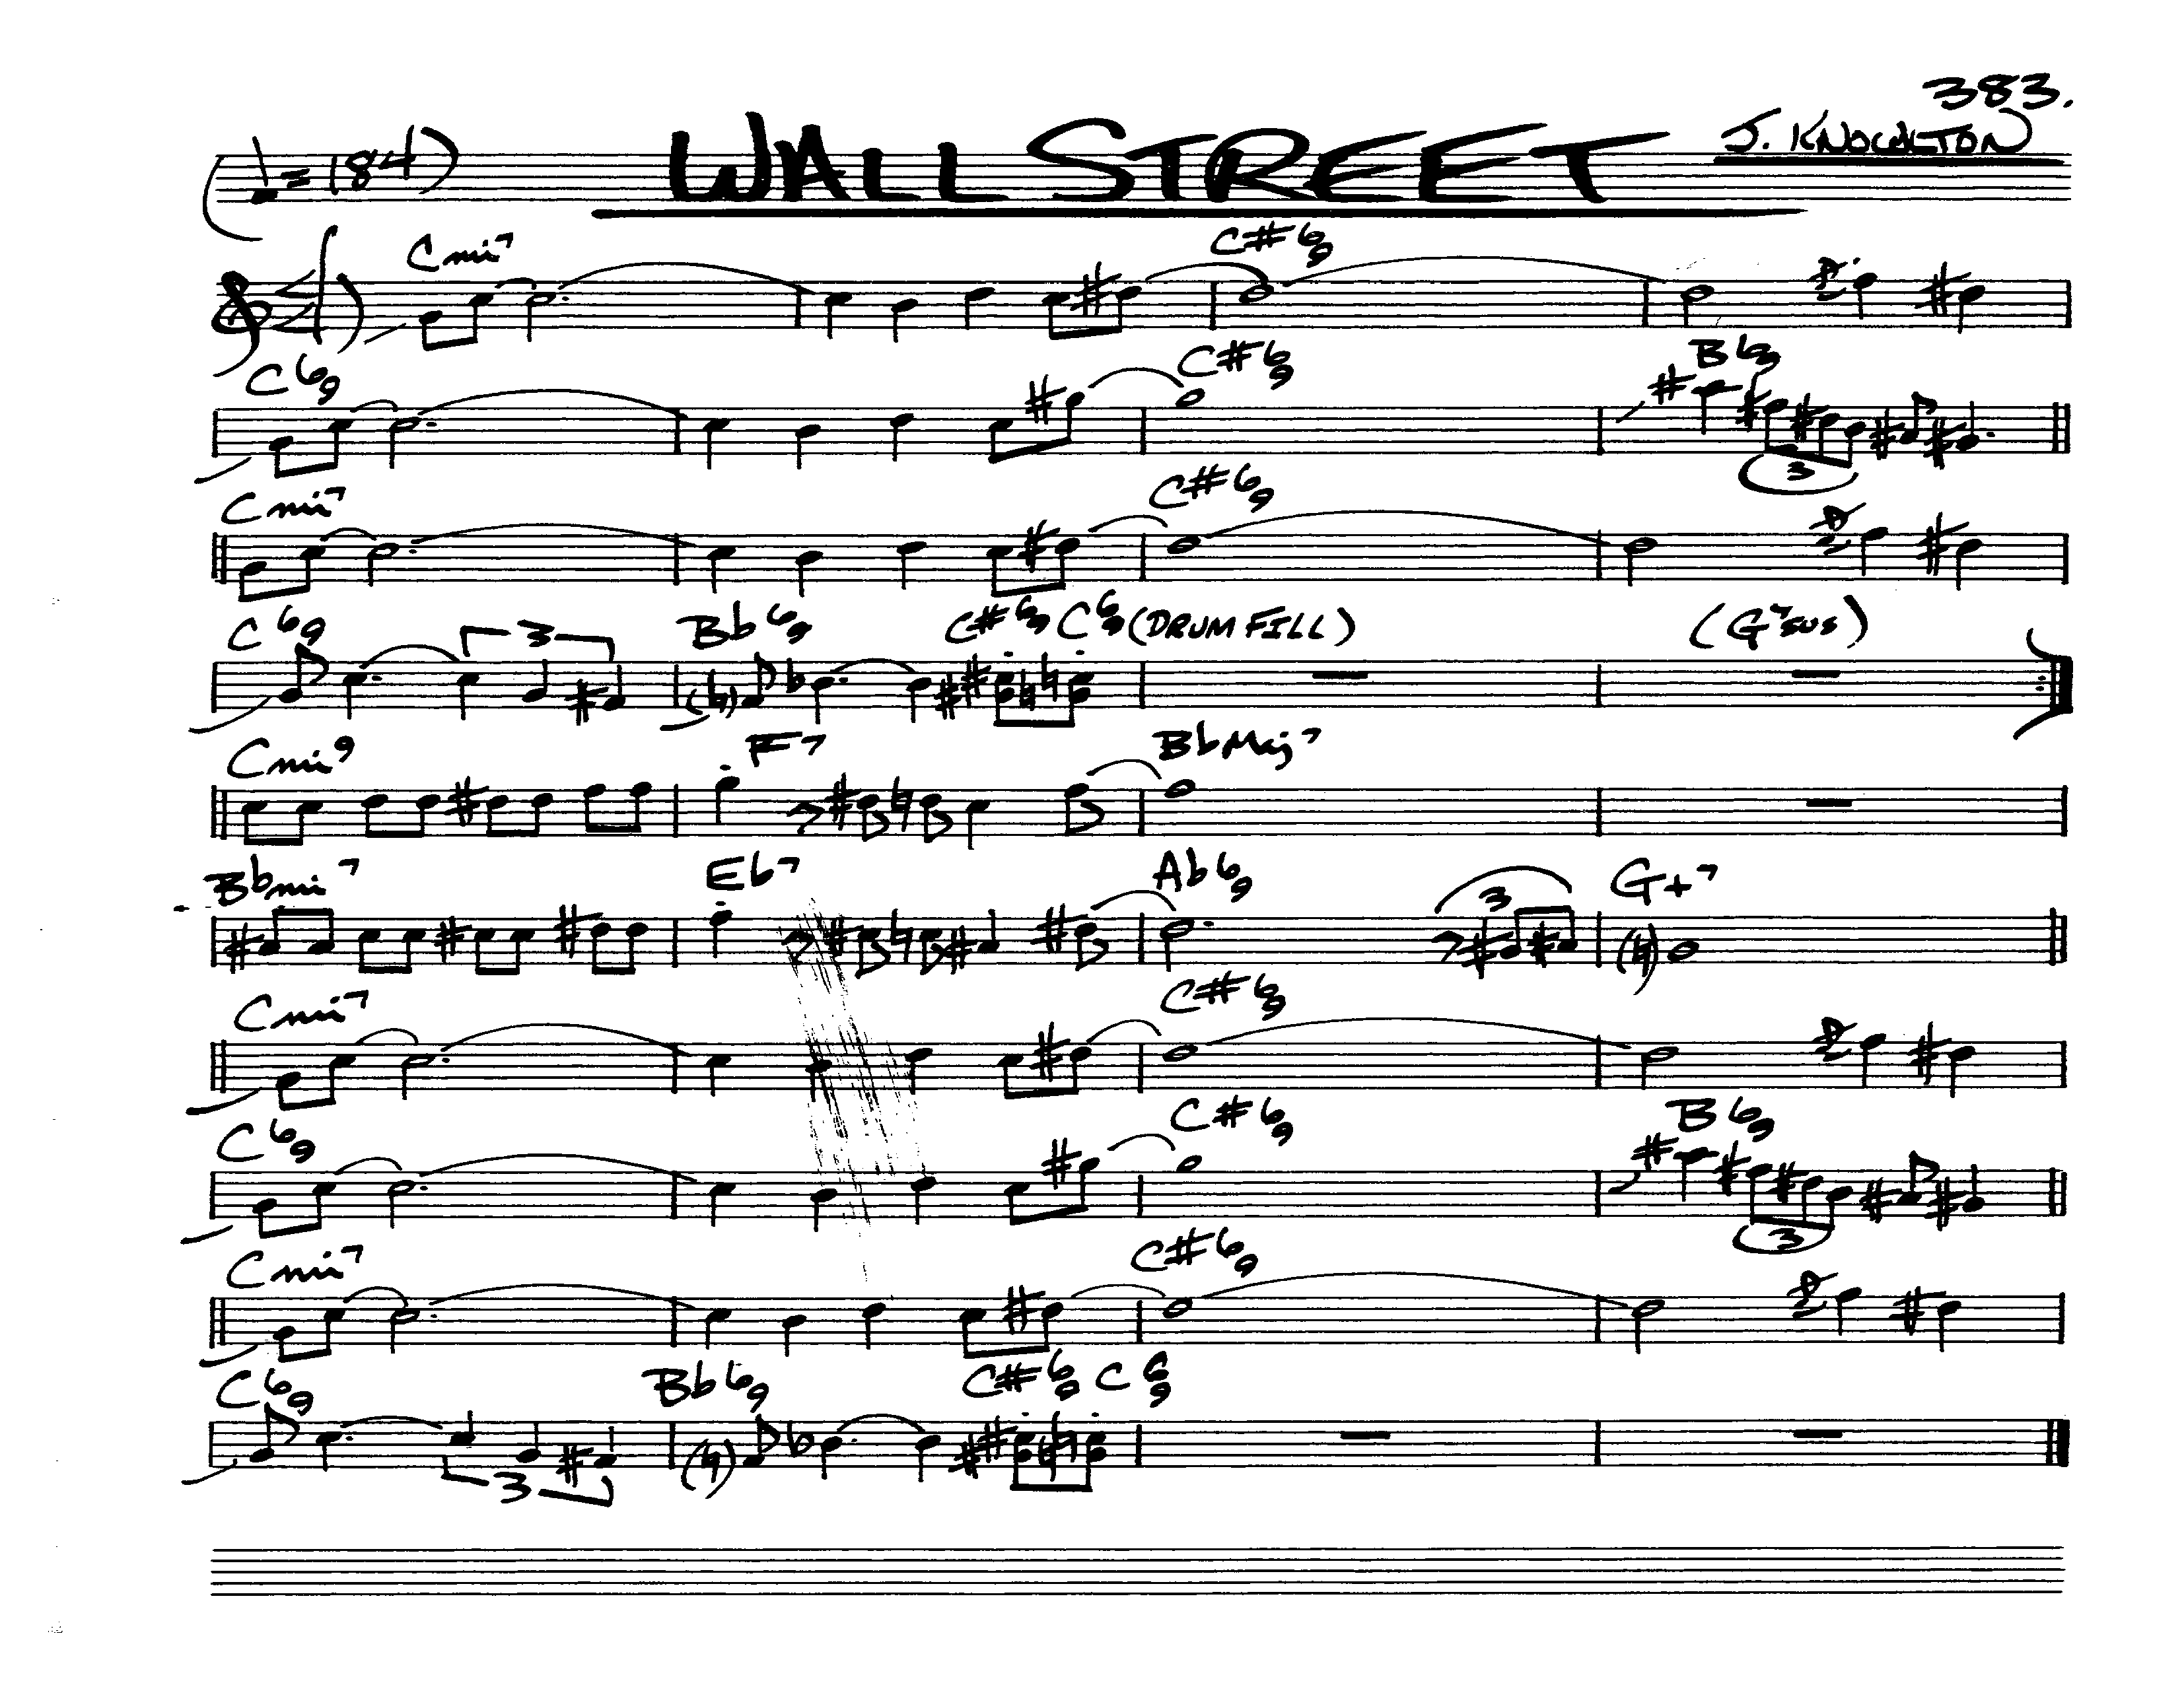 383.
(♩= 184) WALL STREET J. KNOCOLTON
Cmi7 C#6/9
C6/9 C#6/9 B6/9
3
Cmi7 C#6/9
C6/9 3 Bb6/9 C#6/9 C6/9 (DRUM FILL) (G7sus)
Cmi9 F7 BbMaj7
Bbmi7 Eb7 Ab6/9 3 G+7
Cmi7 C#6/9
C6/9 C#6/9 B6/9
3
Cmi7 C#6/9
C6/9 Bb6/9 C#6/9 C6/9
3